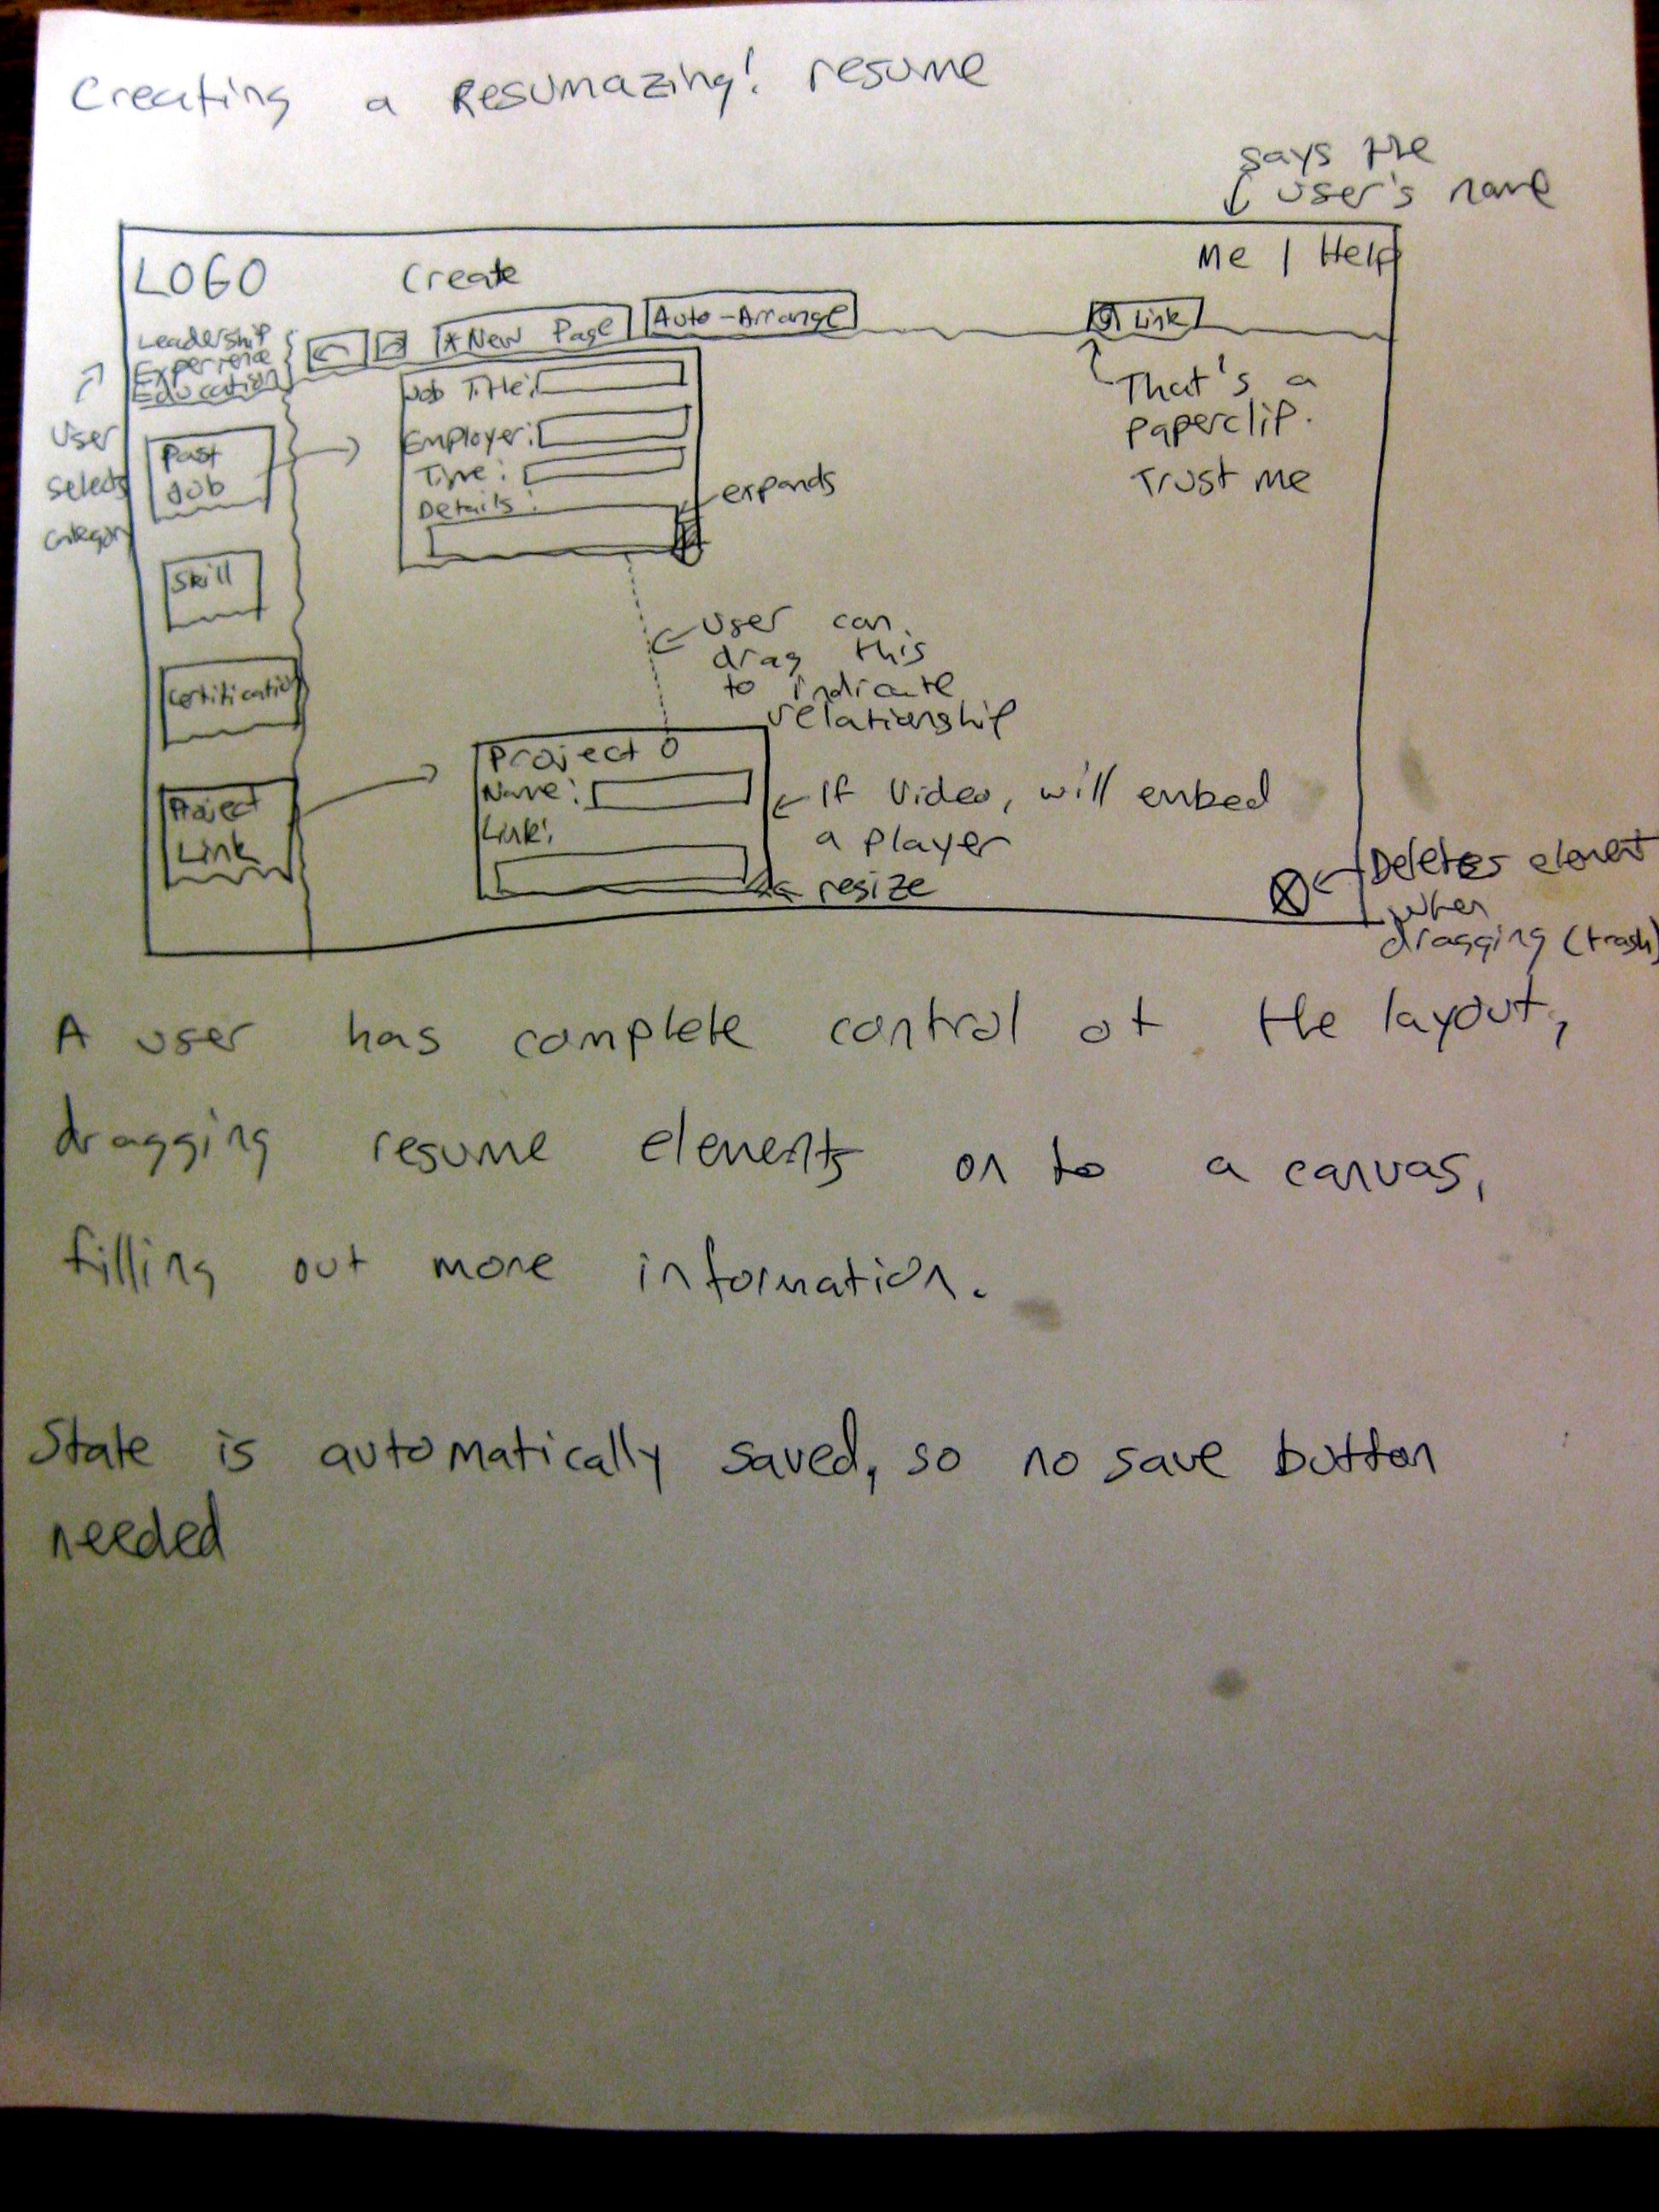 Creating a Resumazing! resume
says the
user's name
LOGO
Create
Me | Help
Leadership
Experience
Education
* New Page
Auto-Arrange
Link
User
selects
category
That's a
paperclip.
Trust me
Job Title:
Employer:
Time:
Details:
expands
Past
Job
Skill
Certification
Project
Link
user can
drag this
to indicate
relationship
Project
Name:
Link:
If Video, will embed
a player
resize
Deletes element
when
dragging (trash)
A user has complete control of the layout,
dragging resume elements on to a canvas,
filling out more information.
State is automatically saved, so no save button
needed